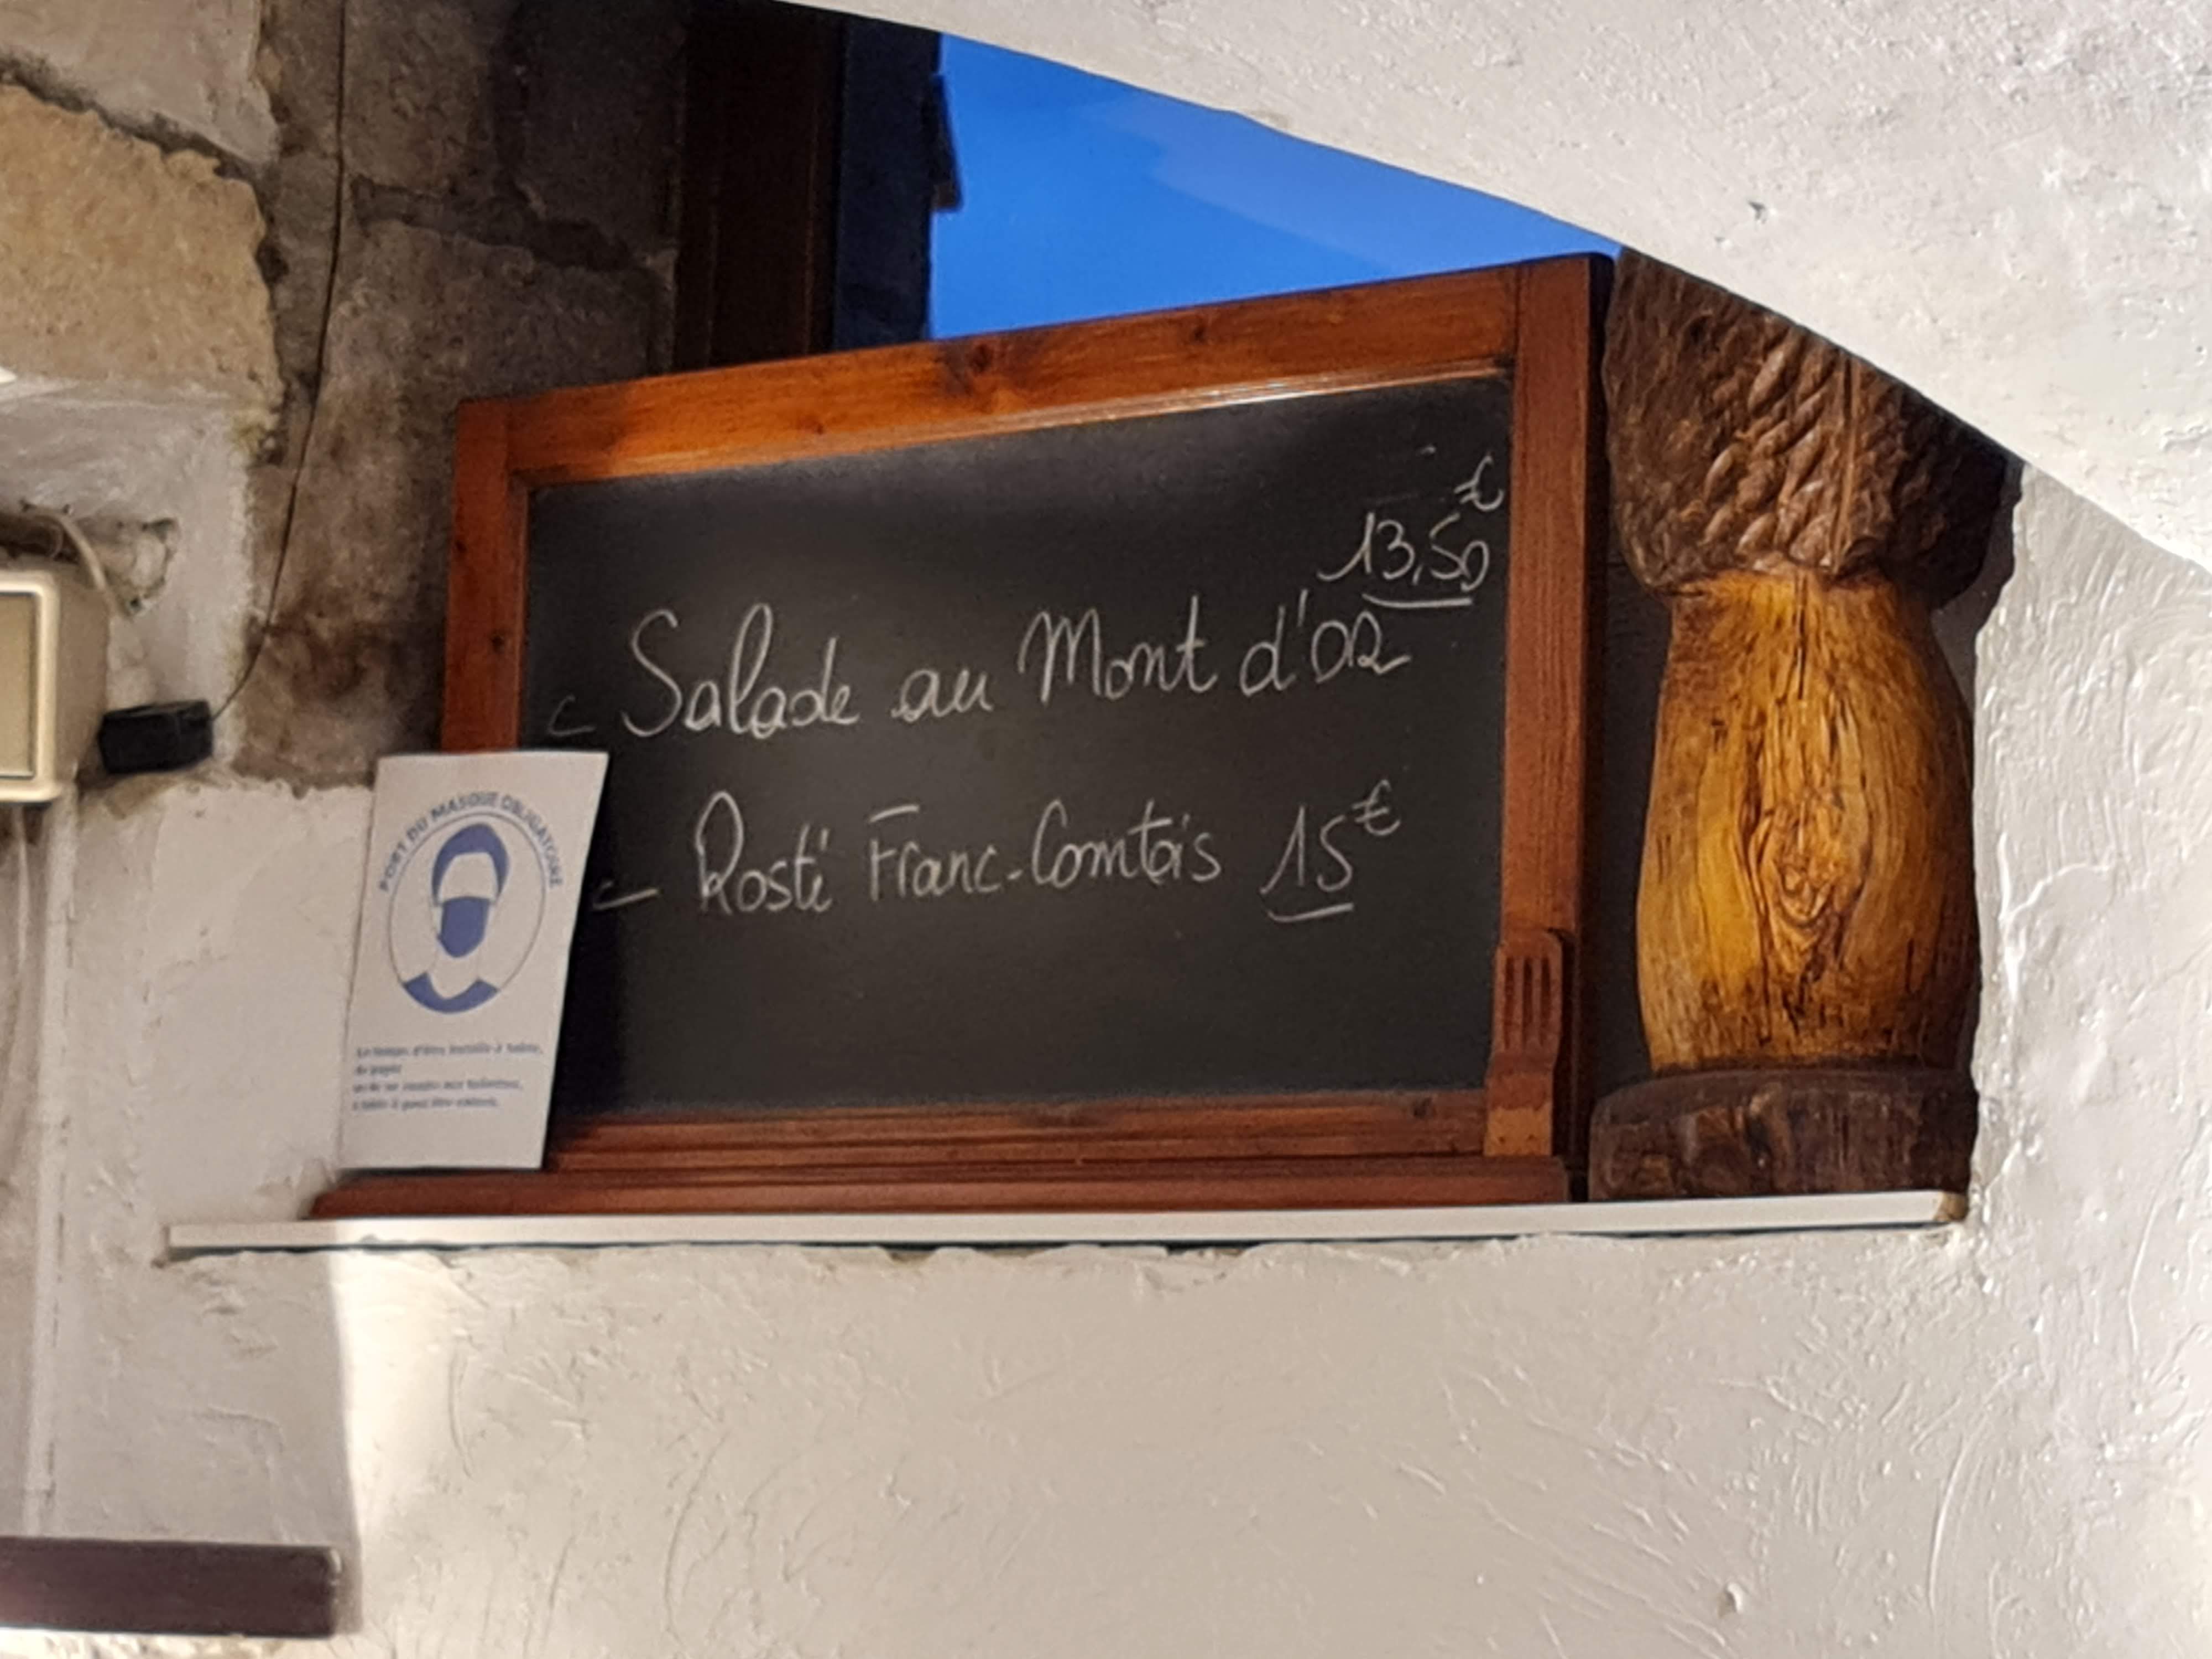 13,50 €
Salade au Mont d'OR
Rosti Franc-Comtois 15 €
PORT DU MASQUE OBLIGATOIRE